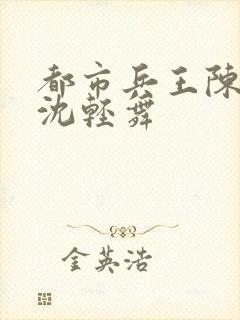 都市兵王陳
沈輕舞
金英浩